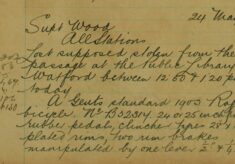 24 Mar
Supt Wood
All Stations
Lost supposed stolen from the
passage at the Public Library
Watford between 12 & 1.20 p
today
A Gents standard 1903 Ral
bicycle No 132304. 24 or 25 inch
rubber pedals, clincher tyres 28 x 1
plated rims, two rim brakes
manipulated by one lever 2